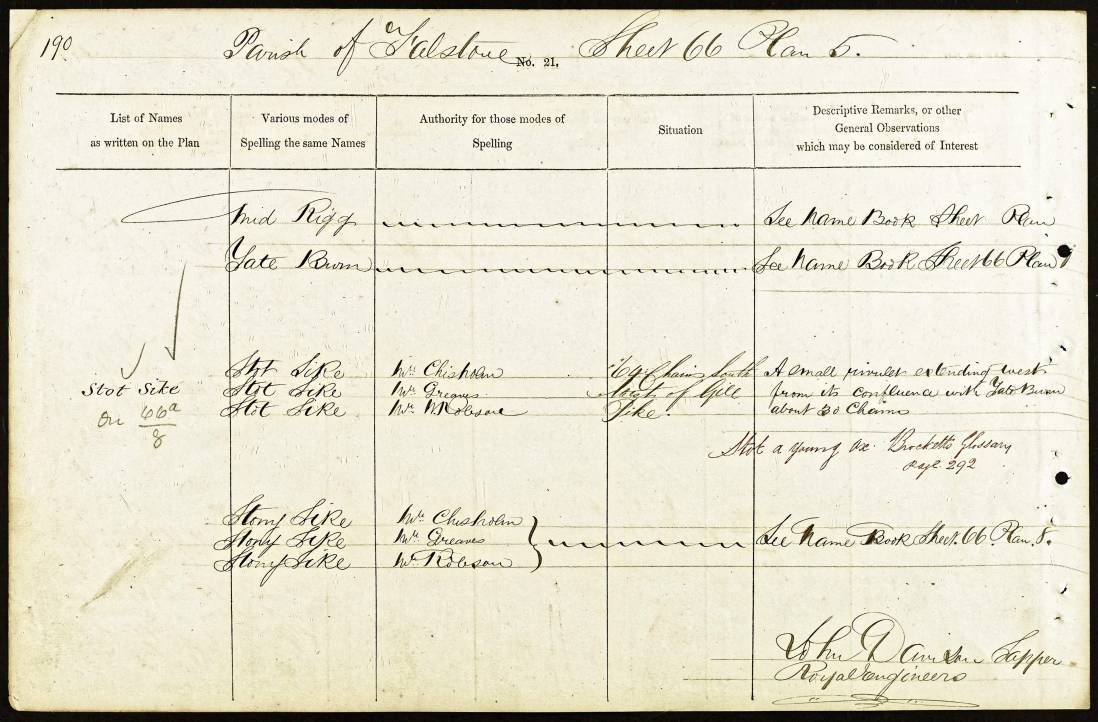 190
Parish of Falstone No. 21. Sheet 66 Plan 5.
List of Names
as written on the Plan
Various modes of
Spelling the same Names
Authority for those modes of
Spelling
Situation
Descriptive Remarks, or other
General Observations
which may be considered of Interest
Mid Rigg See Name Book Sheet Plan
Yate Burn See Name Book Sheet 66 Plan 9
Stot Sike
On 66a
8
Stot Sike
Stot Sike
Stot Sike
Mr. Chisholm
Mr. Greaves
Mr. M Robson
Chains South
of Gill
Sike
A small rivulet extending west
from its confluence with Yate Burn
about 30 Chains
Stot a young ox. Brocketts Glossary
page 292
Stony Sike
Stony Sike
Stony Sike
Mr. Chisholm
Mr. Greaves
Mr. Robson
See Name Book Sheet. 66 Plan. 8.
John Davison Sapper
Royal Engineers